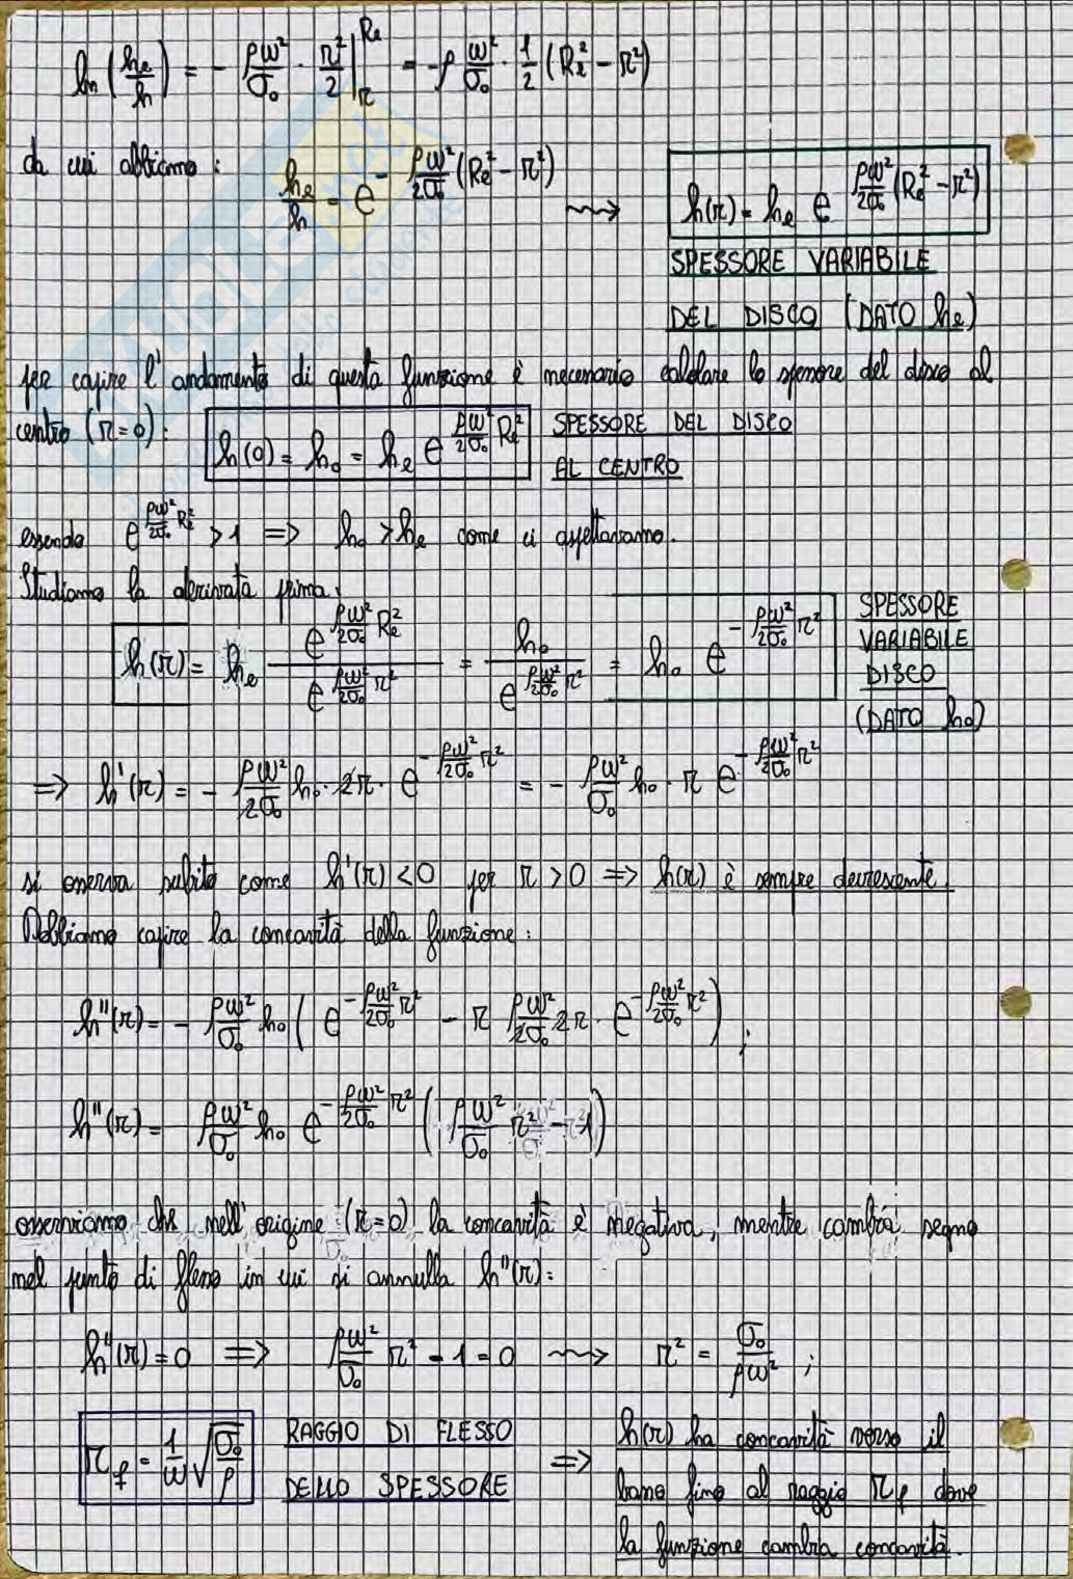 ln (he/h) = - ρω²/σ₀ · r²/2 |_r^Re = -ρ ω²/σ₀ · 1/2 (Re² - r²)
da cui abbiamo : he/h = e^(-ρω²/2σ₀ (Re² - r²)) ⇝ h(r) = he e^(ρω²/2σ₀ (Re² - r²))
SPESSORE VARIABILE
DEL DISCO (DATO he)
per capire l'andamento di questa funzione è necessario calcolare lo spessore del disco al
centro (r=0) : h(0) = h₀ = he e^(ρω²/2σ₀ Re²) SPESSORE DEL DISCO
AL CENTRO
essendo e^(ρω²/2σ₀ Re²) > 1 => h₀ > he come ci aspettavamo.
Studiamo la derivata prima:
h(r) = he e^(ρω²/2σ₀ Re²) / e^(ρω²/2σ₀ r²) = h₀ / e^(ρω²/2σ₀ r²) = h₀ e^(-ρω²/2σ₀ r²)
SPESSORE
VARIABILE
DISCO
(DATO h₀)
=> h'(r) = - ρω²/2σ₀ h₀ · 2r · e^(-ρω²/2σ₀ r²) = - ρω²/σ₀ h₀ · r e^(-ρω²/2σ₀ r²)
si osserva subito come h'(r) < 0 per r > 0 => h(r) è sempre decrescente.
Dobbiamo capire la concavità della funzione :
h''(r) = - ρω²/σ₀ h₀ ( e^(-ρω²/2σ₀ r²) - r ρω²/2σ₀ 2r · e^(-ρω²/2σ₀ r²) ) ;
h''(r) = ρω²/σ₀ h₀ e^(-ρω²/2σ₀ r²) ( ρω²/σ₀ r² - 1 )
osserviamo che nell'origine (r=0) la concavità è negativa, mentre cambia segno
nel punto di flesso in cui si annulla h''(r):
h''(r) = 0 => ρω²/σ₀ r² - 1 = 0 ⇝ r² = σ₀/ρω² ;
r_f = 1/ω √(σ₀/ρ) RAGGIO DI FLESSO
DELLO SPESSORE
=> h(r) ha concavità verso il
basso fino al raggio r_f dove
la funzione cambia concavità.